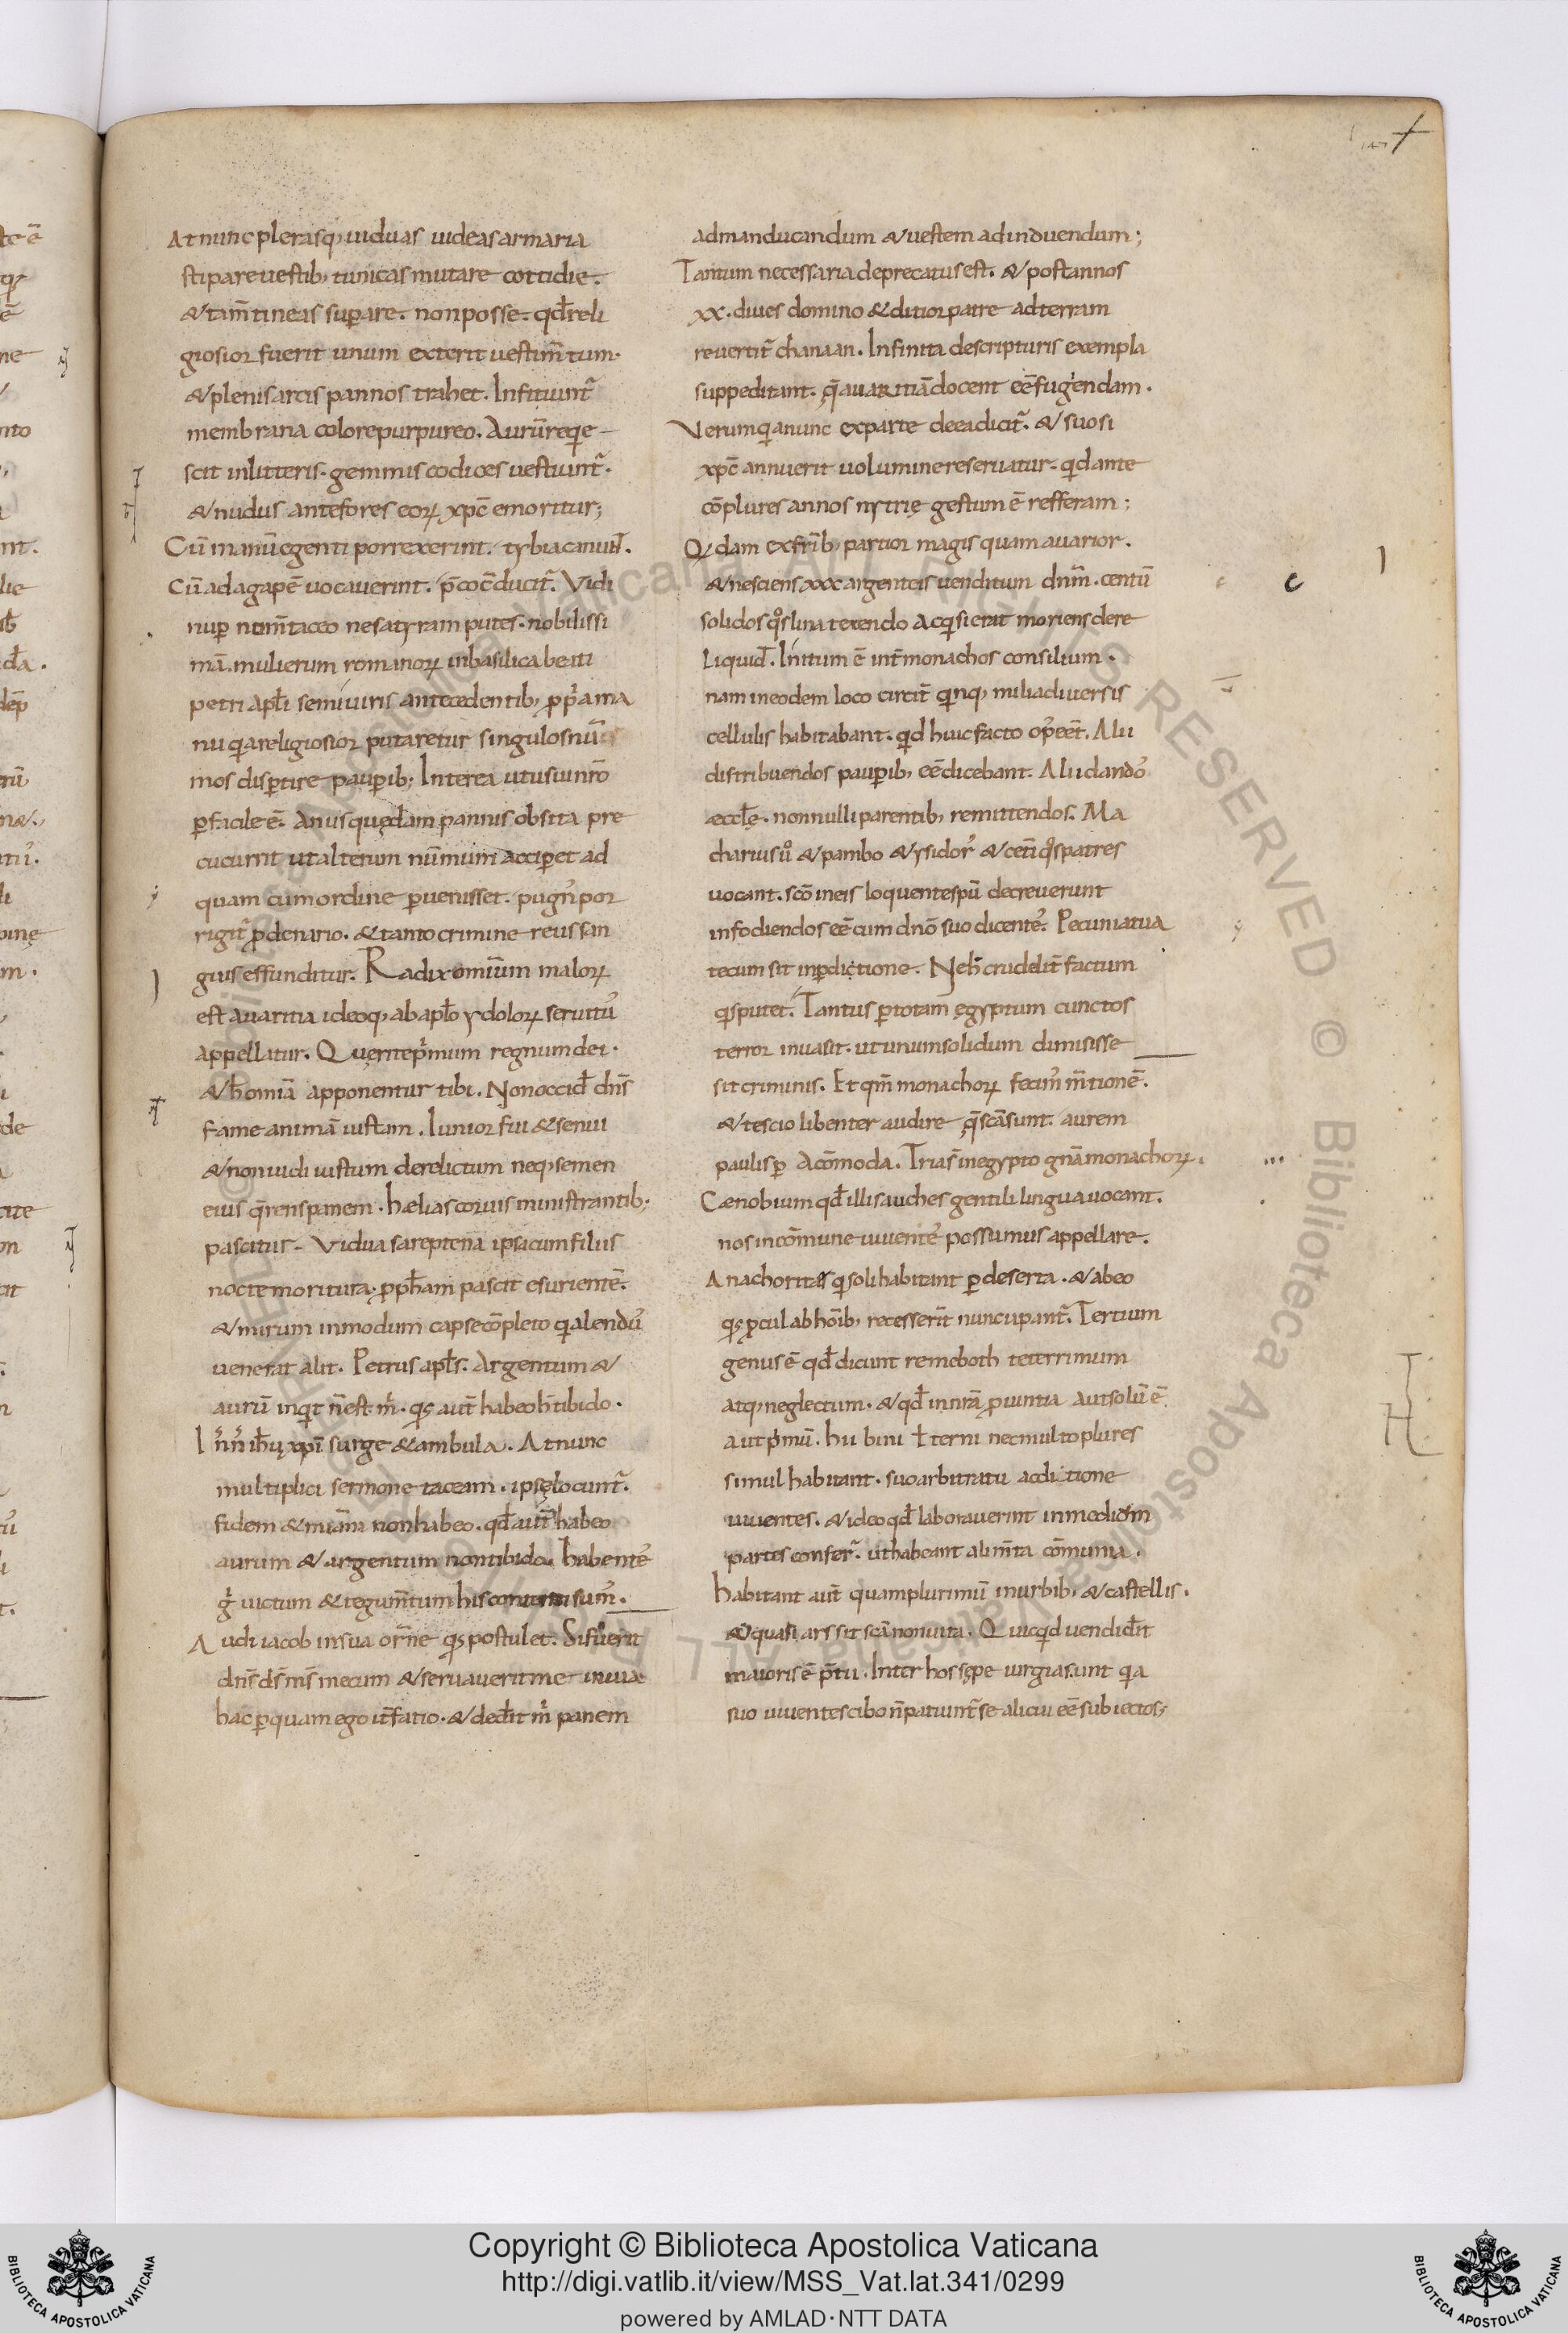 147
At nunc plerasq; uiduas uideas armaria
stipare uestib; tunicas mutare cottidie.
& tam̅ tineas supare. non posse. qđ reli
giosior fuerit unum exterit uestim̅tum.
& plenis arcis pannos trahet. Infitiunt̃
membrana colore purpureo. Aurū reqe
scit in litteris. gemmis codices uestiunt̃.
& nudus ante fores eoꝝ xpc̅ emoritur;
Cū manū egenti porrexerint. tybia canun̅t.
Cū ad agapē uocauerint. p̄co c̅ducit̃. Vidi
nup nom̅ taceo ne satyram putes. nobilissi
mā. mulierum romanoꝝ in basilica beati
petri apłi semiuiris antecedentib; ꝓpria ma
nu qia religiosior putaretur singulos nū
mos dispertire pauꝑib; Interea ut usu inr̅o
ꝑfacile ē. Anus quędam pannis obsita pre
cucurrit ut alterum nūmum acciꝑet ad
quam cum ordine ꝑuenisset. pugn᾽ por
rigit̃ ꝓ denario. & tanto crimine reus san
guis effunditur. Radix omium maloꝝ
est auaritia ideoq; ab apło ydoloꝝ seruitu᾽
appellatur. Querite p̛mum regnum dei.
& h̅ omiā apponentur tibi. Non occid̅ dn̅s
fame animā iustam. Iunior fui & senui
& non uidi iustum derelictum neq; semen
eius q̅rens panem. hælias coruis ministrantib;
pascitur. Vidua sareptena ipsa cum filiis
nocte moritura. ꝓph̅am pascit esurientē.
& mirum in modum capse cōpleto qi alendu᾽
uenerat alit. Petrus apłs. Argentum &
aurū inqit n̅ est m̛. qs aut̅ habeo h̅ tibi do.
In n̅n᾽ ih̅u xpi̅ surge & ambula. At nunc
multiplici sermone taceam. ipsę locunt̃.
fidem & miām non habeo. qđ aut̅ habeo
aurum & argentum non tibi do. habente᾽
g̛ uictum & tegum̅tum his contenti sum᾽.
Audi iacob in sua or̅ne qs postulet. Si fuerit
dn̅s ds̅ ms̅ mecum & seruauerit me in uia
hac ꝑ quam ego it̅ facio. & ded̅it m̛ panem
ad manducandum & uestem ad induendum;
Tantum necessaria deprecatus est. & post annos
xx. diues domino & ditior patre ad terram
reuertit̃ chanaan. Infinita de scripturis exempla
suppeditant. q̅ auaritiā docent eē fugiendam.
Verum qia nunc ex parte de ea dicit̃. & suo si
xpc̅ annuerit uolumine reseruatur. qid ante
cōplures annos nytrię gestum ē refferam;
Qidam ex frib; partior magis quam auarior.
& nesciens xxx argenteis uenditum dn̅m. centū
solidos qos lina texendo acqsierat moriens dere
liquid̅. Initum ē int̅ monachos consilium.
nam in eodem loco circit̅ qinq; milia diuersis
cellulis habitabant. qid huic facto op᾽ eēt. Alii
distribuendos pauꝑib; eē dicebant. Alii dando᾽
æccłę. nonnulli parentib; remittendos. Ma
charius u͛ & pambo & ysidor᾽ & cet̅i qos patres
uocant. sc̅o in eis loquente spū decreuerunt
infodiendos eē cum dn̅o suo dicente᾽. Pecunia tua
tecum sit in ꝑdictione. Ne h̅ crudelit̅ factum
qs putet. Tantus ꝑ totam egyptum cunctos
terror inuasit. ut unum solidum dimisisse
sit criminis. Et qm̅ monachoꝝ fecim᾽ m̅tionē.
& te scio libenter audire q̅ scā sunt. aurem
paulisꝑ acōmoda. Tria s̅ in egypto gn̅a monachoꝝ.
Cænobium qđ illi sauches gentili lingua uocant.
nos in cōmune uiuente᾽ possumus appellare.
Anachoritas qi soli habitant ꝑ deserta. & ab eo
qs ꝓcul ab hōib; recesserit̅ nuncupant̃. Tertium
genus ē qđ dicunt remoboth teterrimum
atq; neglectum. & qđ in nr̅ā ꝓuintia aut solū ē
aut p̛mū. hii bini ł terni nec multo plures
simul habitant. suo arbitratu ac dictione
uiuentes. & ideo qđ laborauerint in medium
partes confer̃. ut habeant alim̅ta cōmunia.
habitant aut̅ quam plurimū in urbib; & castellis.
& quasi ars sit scā non uita. Quicqid uendid̅it
maioris ē p̄tii. Inter hos sępe iurgia sunt qia
suo uiuentes cibo n̅ patiunt̃ se alicui eē subiectos;
Copyright © Biblioteca Apostolica Vaticana
http://digi.vatlib.it/view/MSS_Vat.lat.341/0299
powered by AMLAD·NTT DATA
BIBLIOTECA APOSTOLICA VATICANA
BIBLIOTECA APOSTOLICA VATICANA